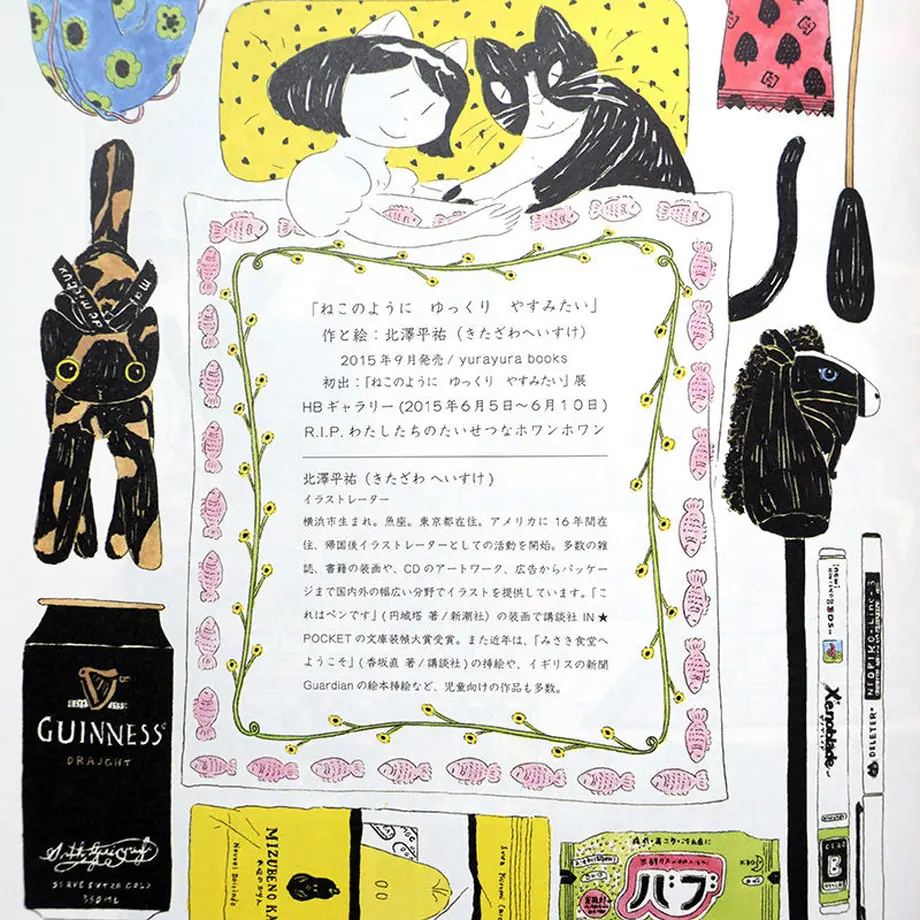 「ねこのように　ゆっくり　やすみたい」
作と絵：北澤平祐（きたざわへいすけ）
2015年9月発売/ yurayura books
初出：「ねこのように　ゆっくり　やすみたい」展
HBギャラリー(2015年6月5日〜6月10日)
R.I.P. わたしたちのたいせつなホワンホワン
北澤平祐（きたざわ へいすけ）
イラストレーター
横浜市生まれ。魚座。東京都在住。アメリカに16年間在
住、帰国後イラストレーターとしての活動を開始。多数の雑
誌、書籍の装画や、CDのアートワーク、広告からパッケ
ージまで国内外の幅広い分野でイラストを提供しています。「こ
れはペンです」(円城塔 著/新潮社) の装画で講談社 IN★
POCKETの文庫装幀大賞受賞。また近年は、「みさき食堂へ
ようこそ」(香坂直 著/講談社)の挿絵や、イギリスの新聞
Guardianの絵本挿絵など、児童向けの作品も多数。
GUINNESS
DRAUGHT
SERVE EXTRA COLD
350ML
MIZUBENO KA
バブ
Xenoblade
NEOPIKO-Line-3
DELETER
B